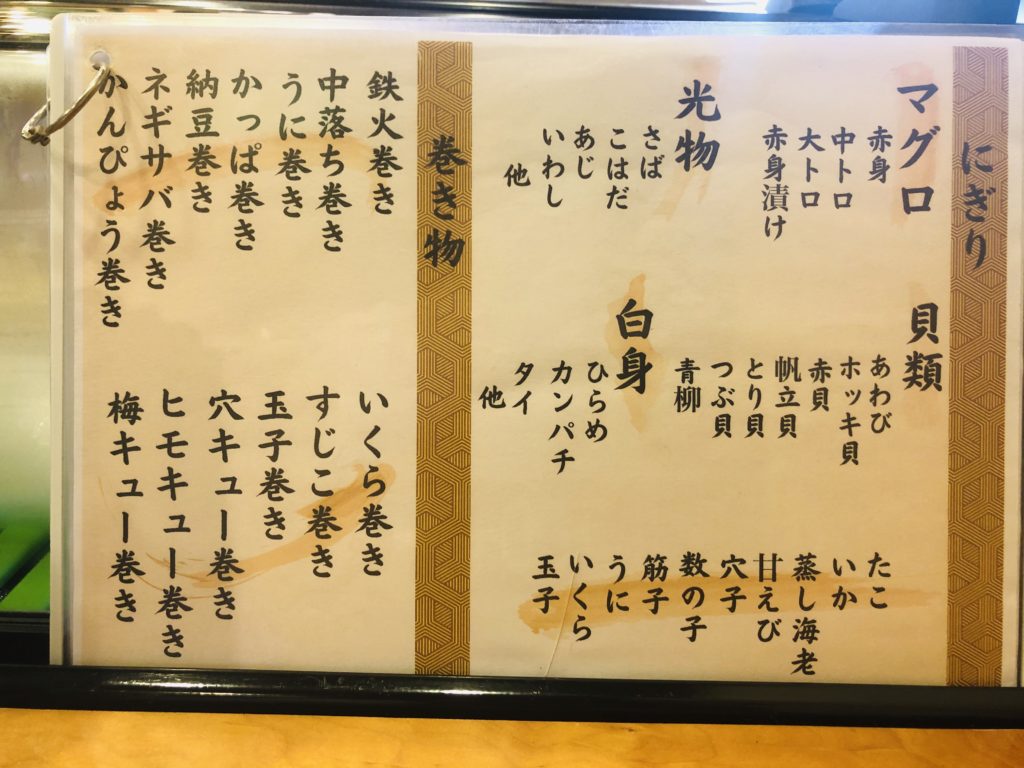 にぎり
マグロ
赤身
中トロ
大トロ
赤身漬け
光物
さば
こはだ
あじ
いわし
他
貝類
あわび
ホッキ貝
赤貝
帆立貝
とり貝
つぶ貝
青柳
白身
ひらめ
カンパチ
タイ
他
たこ
いか
蒸し海老
甘えび
穴子
数の子
筋子
うに
いくら
玉子
巻き物
鉄火巻き
中落ち巻き
うに巻き
かっぱ巻き
納豆巻き
ネギサバ巻き
かんぴょう巻き
いくら巻き
すじこ巻き
玉子巻き
穴キュー巻き
ヒモキュー巻き
梅キュー巻き